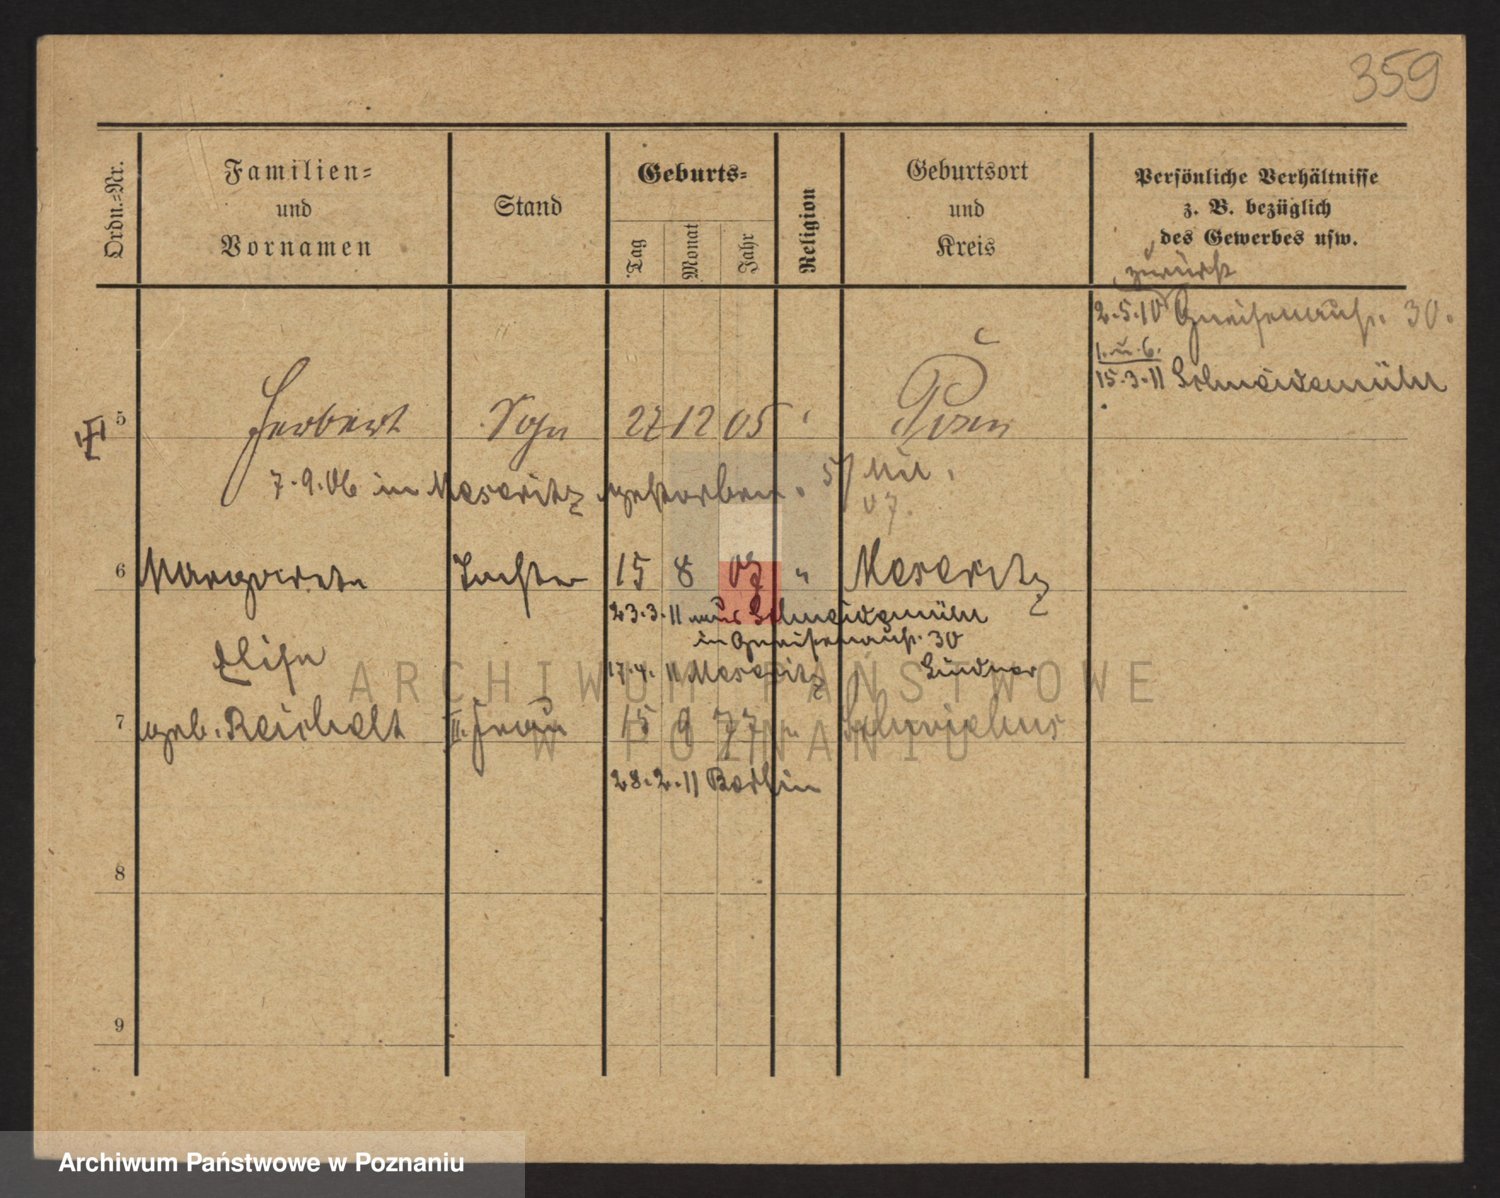 359
Ordn.-Nr.
Familien-
und
Vornamen
Stand
Geburts-
Tag
Monat
Jahr
Religion
Geburtsort
und
Kreis
Persönliche Verhältnisse
z. B. bezüglich
des Gewerbes usw.
zurück
2.5.10 Gneisenaustr. 30.
1. u. 6.
15.3.11 Schneidemühl
5 Herbert Sohn 27 12 05 Posen
7.9.06 in Meseritz gestorben.
07.
6 Margarete Tochter 15 8 07 " Meseritz
23.3.11 aus Schneidemühl
in Gneisenaustr. 30
Elise 17.4.11 Meseritz Lindner
7 geb. Reichelt II. Frau 15 9 77 " Schwiebus
28.2.11 Berlin
8
9
ARCHIWUM PAŃSTWOWE
W POZNANIU
Archiwum Państwowe w Poznaniu